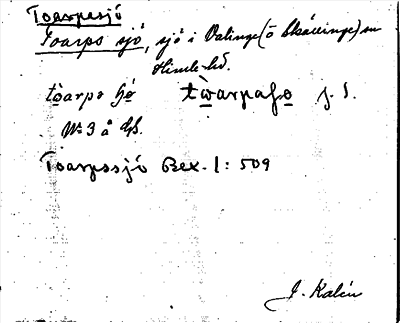 Toarpssjö
Toarps sjö, sjö i Valinge (ö Skällinge) sn
Himle hd.
tòarps ʃö tẁarpaʃo J. S.
No 3 å Gk.
Toarpssjö Bex. 1: 509
J. Kalén